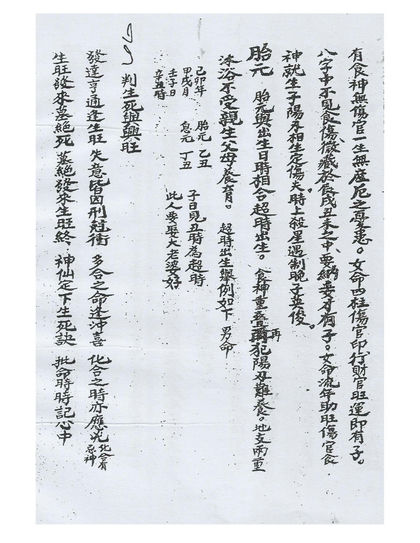 有食神無傷官一生無産厄之憂患。女命四柱傷官印行財官旺運即有子。
八字中不見食傷微藏於辰戌丑未之中、要納妾才有子。女命流年助旺傷官食
神就生子陽刃相生定傷夫時上殺星遇制晩子英俊。
胎元 胎元與出生日時相合超時出生。食神重疊再犯陽刃難養。地支兩重
沐浴不受親生父母養育。 超時出生舉例如下 男命
己卯年 胎元 乙丑
甲戌月 息元 丁丑
壬子日 子日見丑時為超時
辛丑時 此人要娶大老婆好
判生死與興旺
發達亨通逢生旺 失意皆因刑尅衝 多合之命逢沖喜 化合之時亦應凶 化合有忌神
生旺發來墓絕死 墓絕發來生旺終 神仙定下生死訣 批命時時記心中